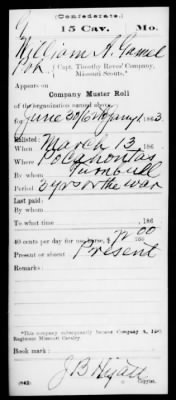 (Confederate.)
G 15 Cav. Mo.
William A. Gamel
Pvt. { Capt. Timothy Reves' Company, Missouri Scouts.*
Appears on
Company Muster Roll
of the organization named above,
for June 30/62 to Jany 1, 1863.
Enlisted:
When March 13, 186
Where Pocahontas
By whom Turnbull
Period 3 yrs or the war
Last paid:
By whom
To what time , 186
40 cents per day for use horse, $ 72 00/100
Present or absent Present
Remarks:
*This company subsequently became Company A, 15th
Regiment Missouri Cavalry.
Book mark:
(642) J B Hyatt
Copyist.